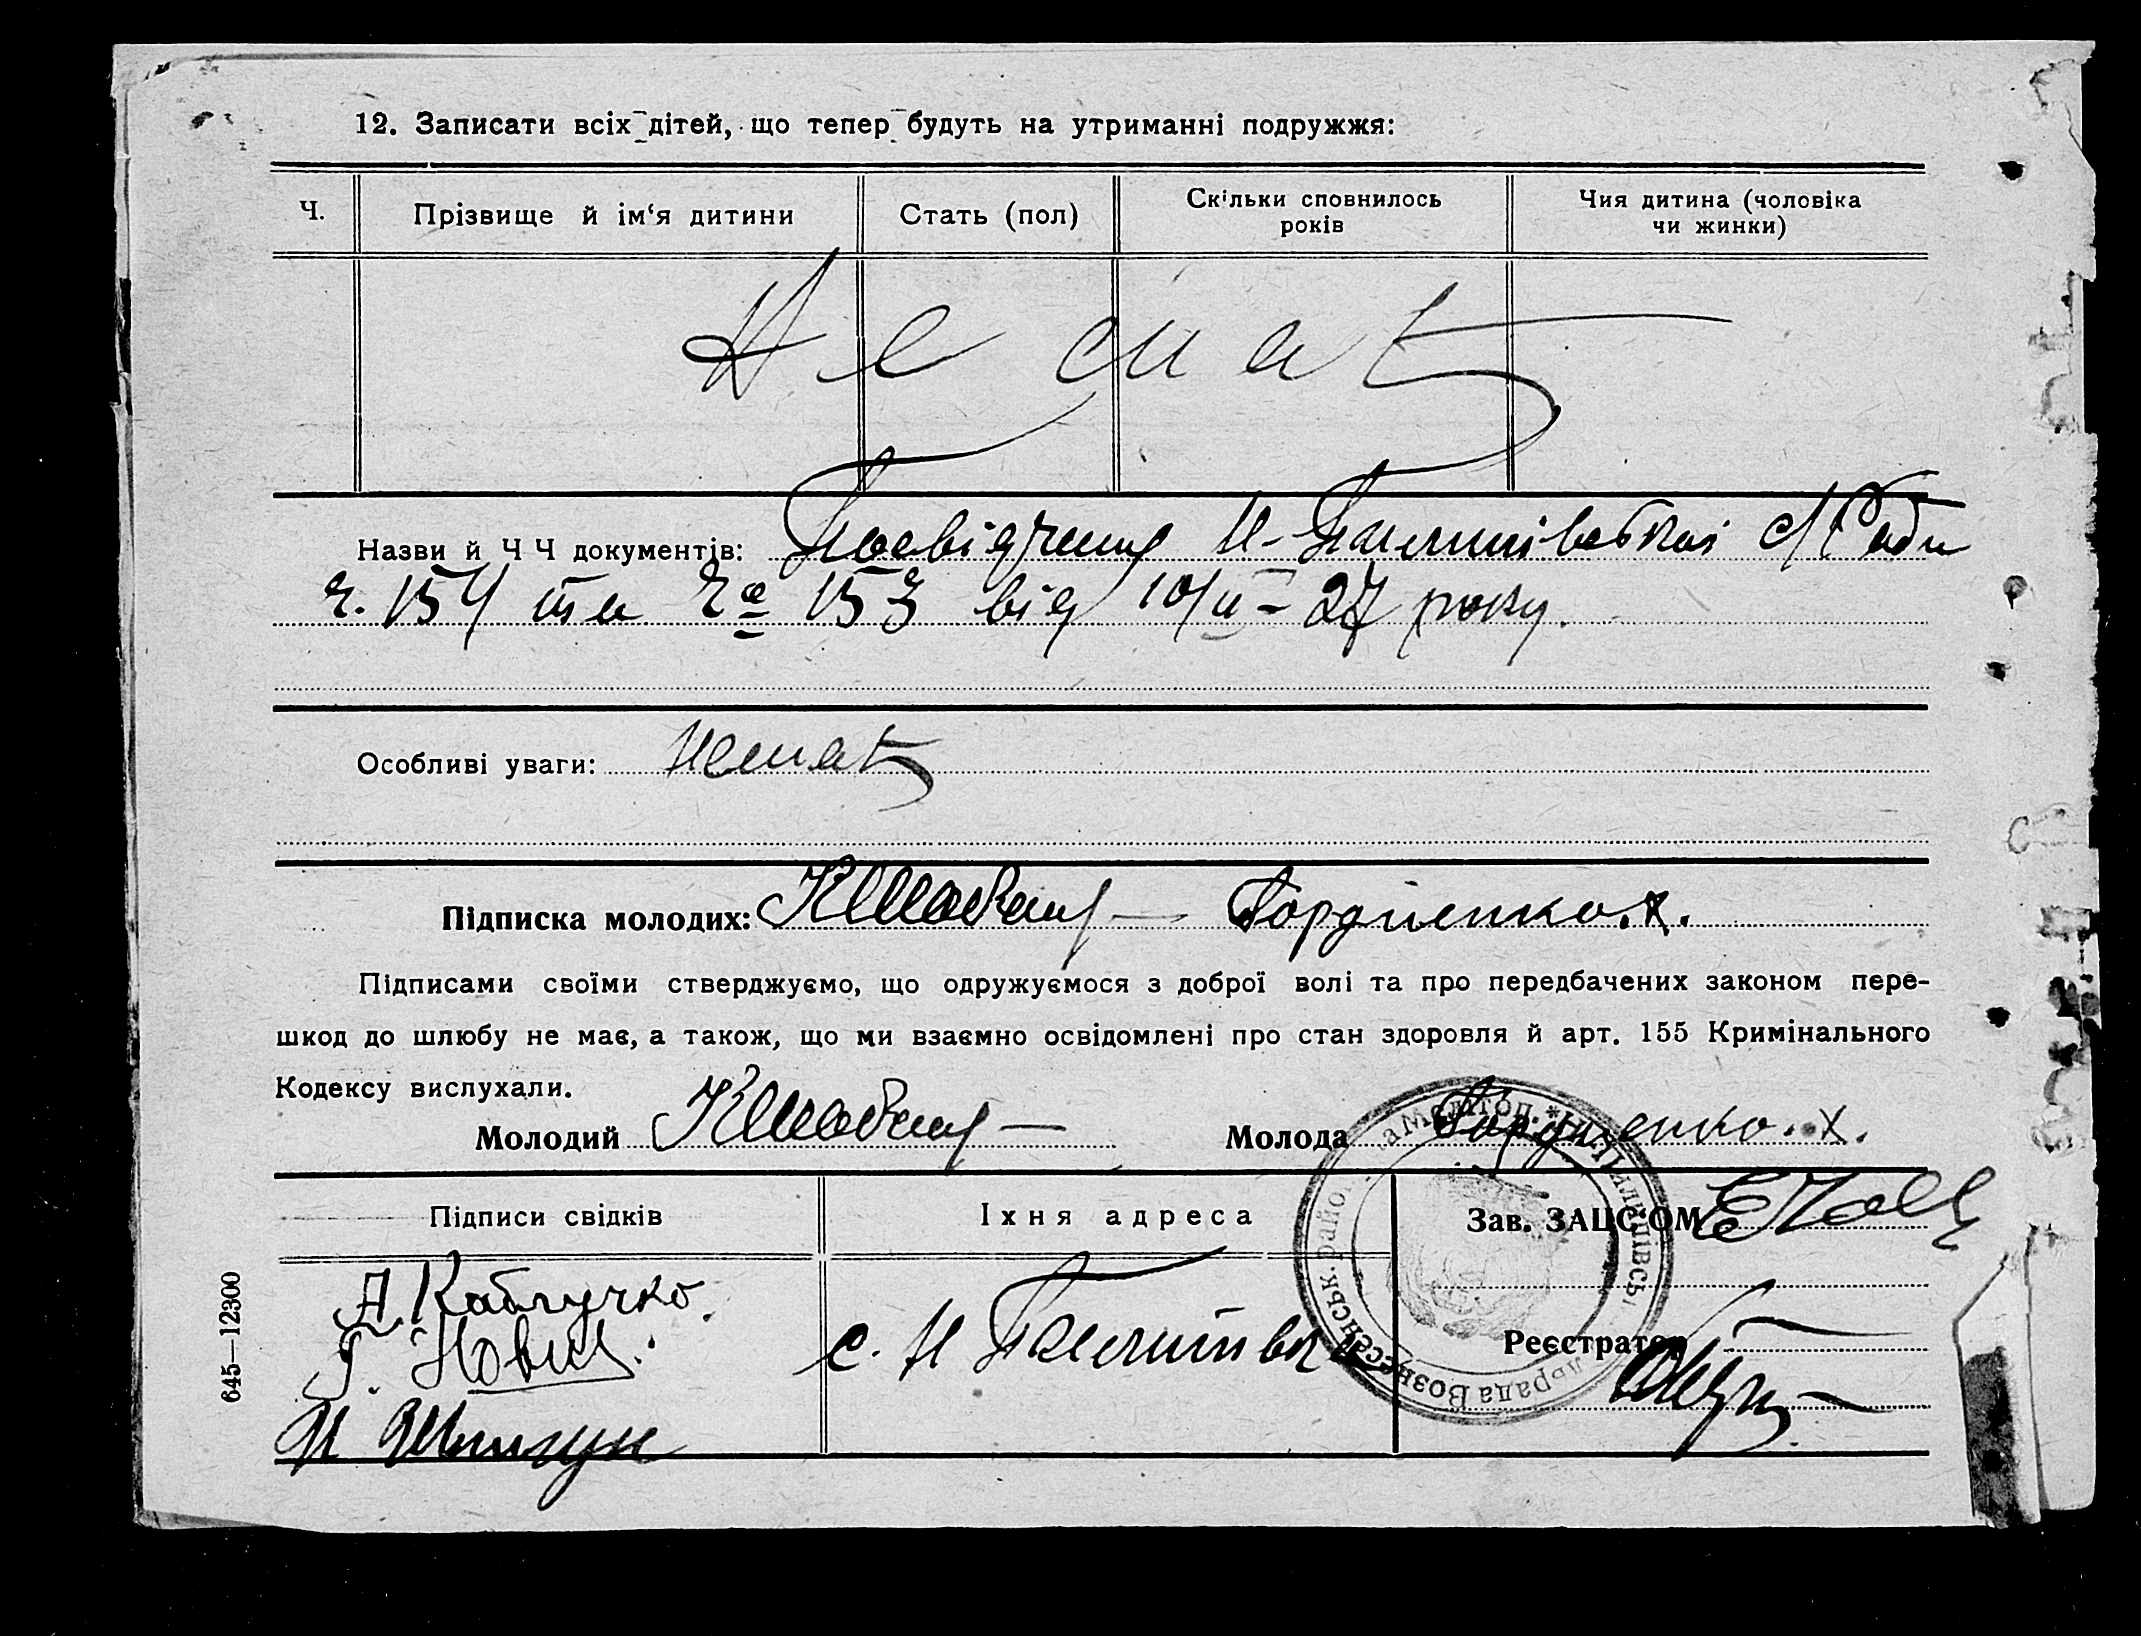 12. Записати всіх дітей, що тепер будуть на утриманні подружжя:
Ч. Прізвище й ім‘я дитини Стать (пол) Скільки сповнилось років Чия дитина (чоловіка чи жинки)
Немає
Назви й Ч Ч документів: Посвідчення Н-Пилипівської с/Ради
ч. 154 та ч 153 від 10/II-27 року.
Особливі уваги: Немає
Підписка молодих: Гордіенко. х.
Підписами своїми стверджуємо, що одружуємося з доброї волі та про передбачених законом пере-
шкод до шлюбу не має, а також, що ми взаємно освідомлені про стан здоровля й арт. 155 Кримінального
Кодексу вислухали.
Молодий Молода Гордиенко. х.
Підписи свідків Їхня адреса Зав. ЗАЦС‘ОМ
А. Каблучко.
Г. Новик. с. Н Пилипівка Реєстратор
645—12300